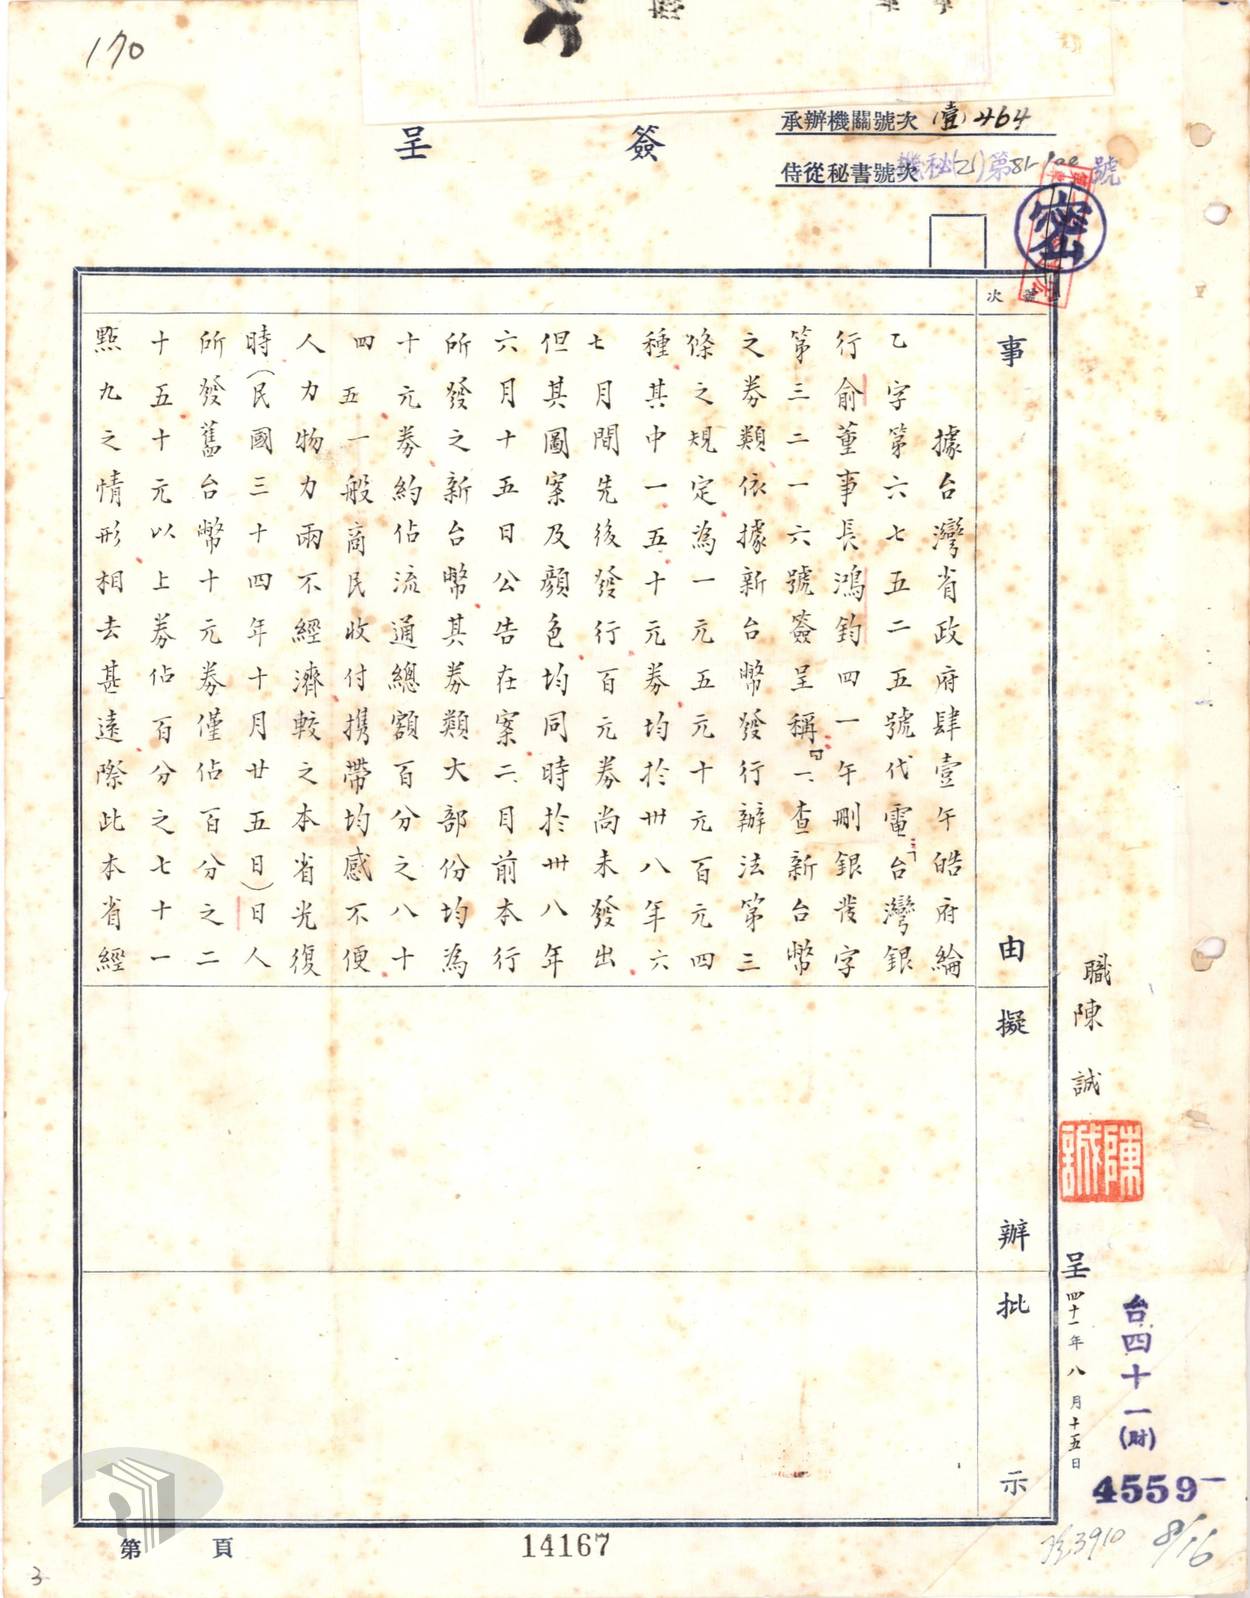 170
承辦機關號次 (壹)464
侍從秘書號次 機秘(乙)第81- 號
簽呈
密
號次
事由
據台灣省政府肆壹午皓府綸
乙字第六七五二五號代電「台灣銀
行俞董事長鴻鈞四一午刪銀發字
第三二一六號簽呈稱『一、查新台幣
之券類依據新台幣發行辦法第三
條之規定為一元五元十元百元四
種其中一五十元券均於卅八年六
七月間先後發行百元券尚未發出
但其圖案及顏色均同時於卅八年
六月十五日公告在案二月前本行
所發之新台幣其券類大部份均為
十元券約佔流通總額百分之八十
四五一般商民收付携帶均感不便
人力物力兩不經濟較之本省光復
時(民國三十四年十月廿五日)日人
所發舊台幣十元券僅佔百分之二
十五十元以上券佔百分之七十一
點九之情形相去甚遠際此本省經
擬辦
批示
職陳誠
陳誠
呈四十一年八月十五日
台四十一(財)
4559
8/16
第 頁
14167
3